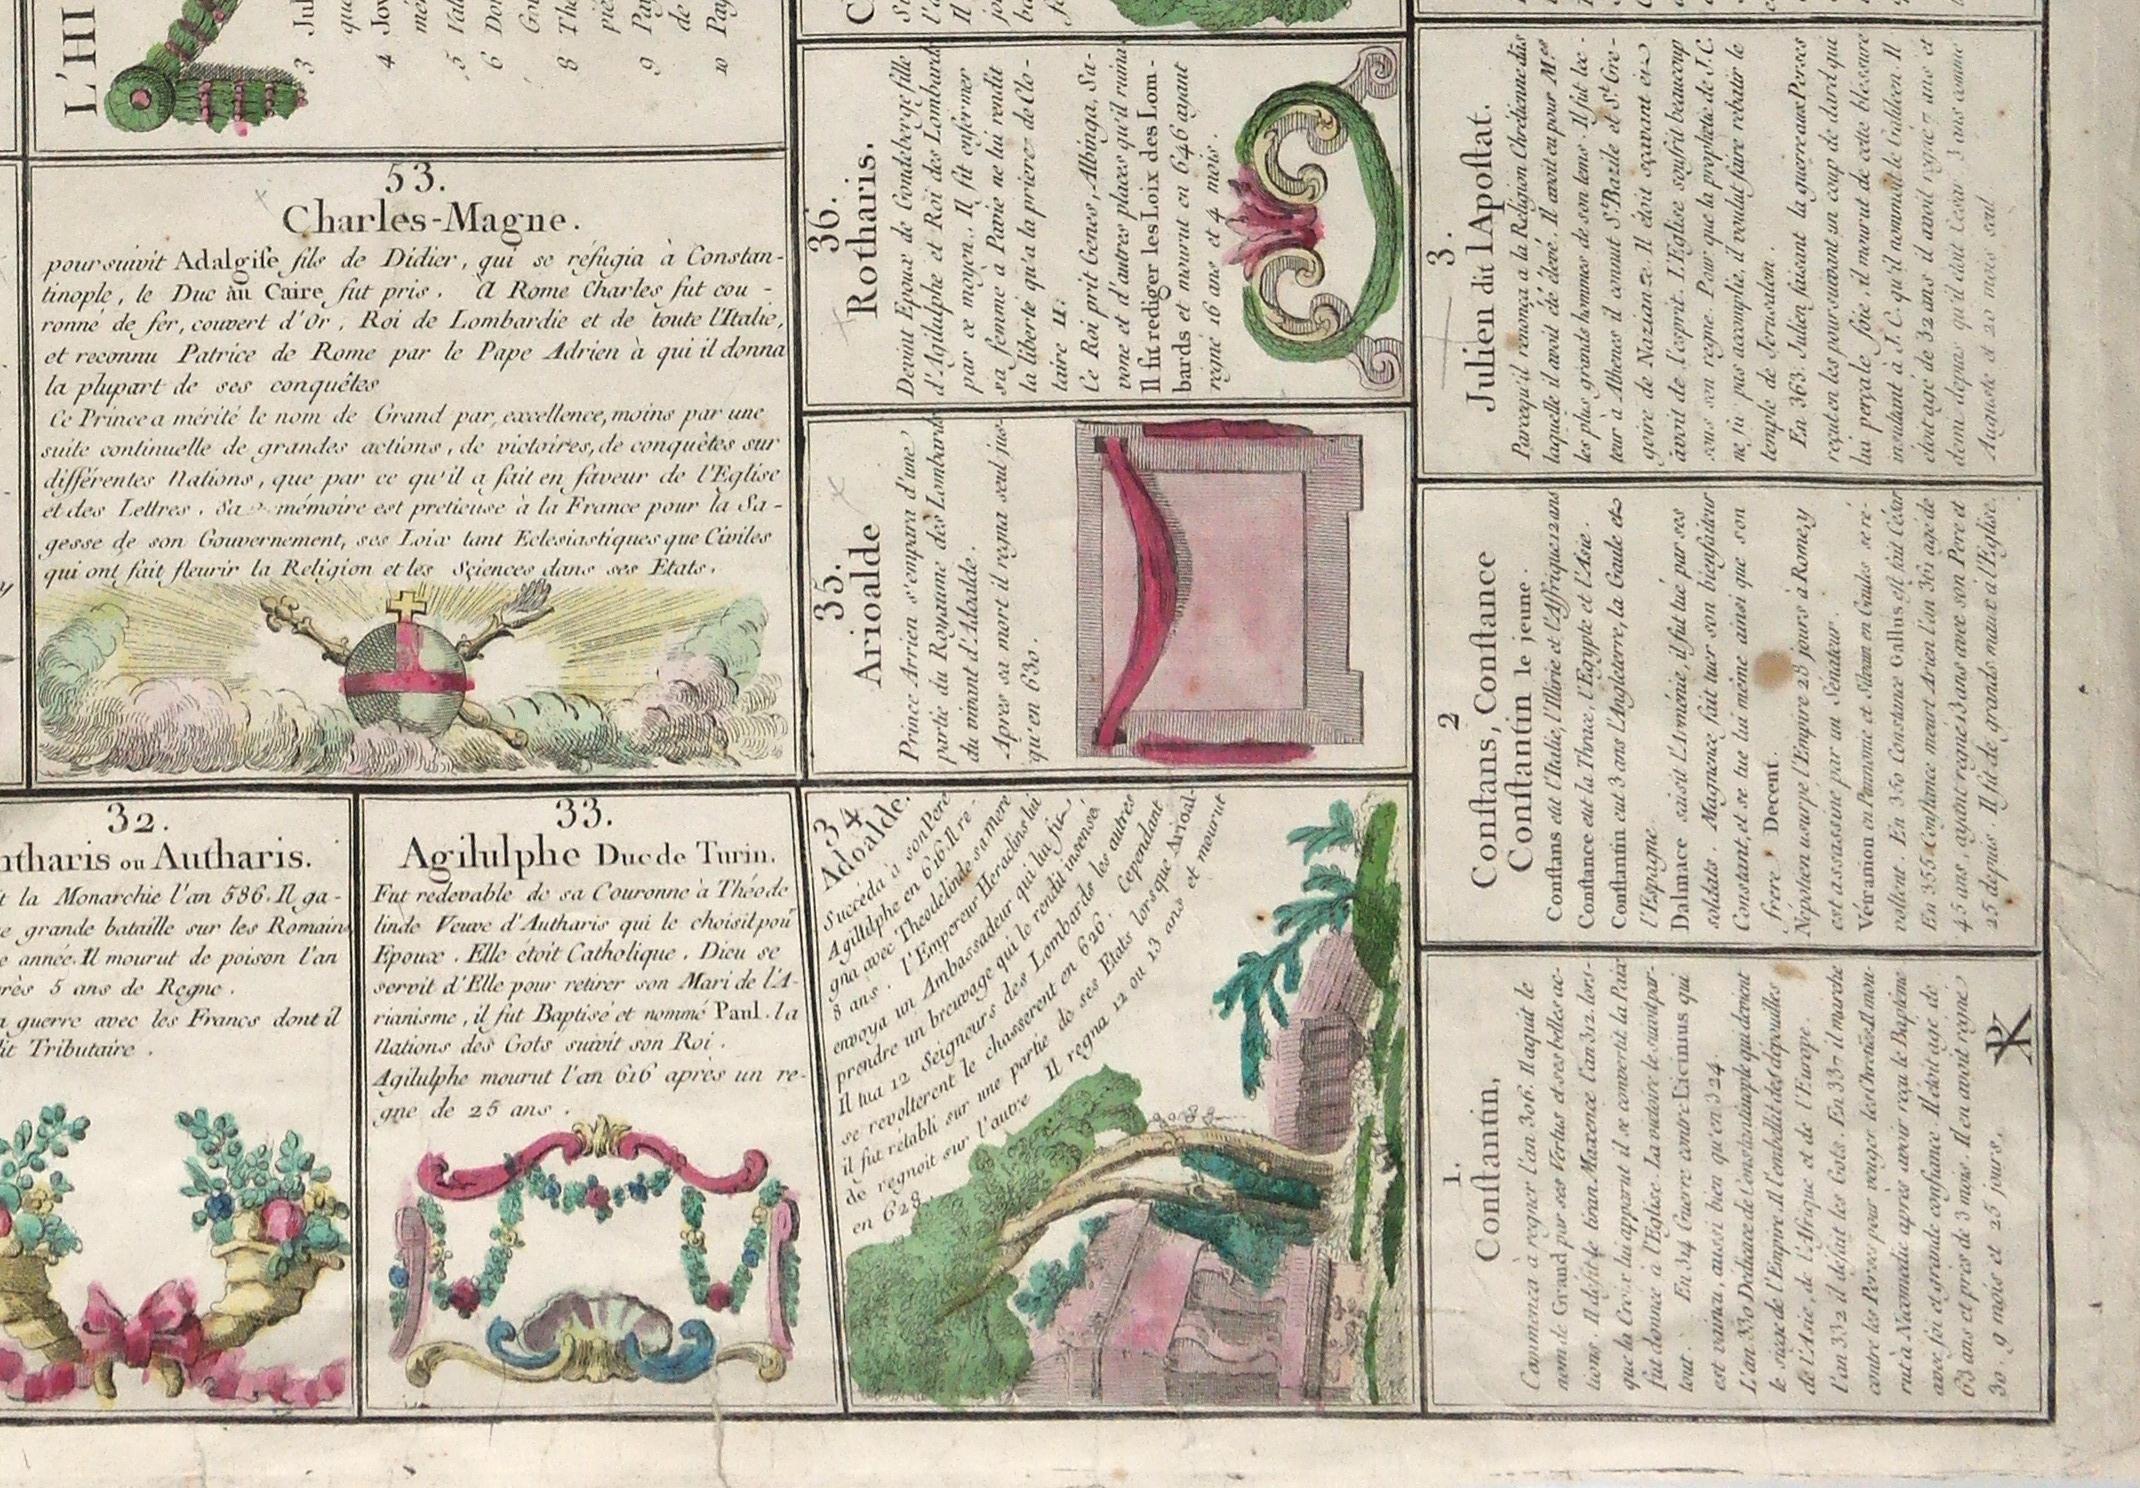 L'HI
3 Jul
que
4 Jov
mé
5 Val
6 Do
Gr
8 Th
pié
9 Pa
de
10 Pa
53.
Charles-Magne.
poursuivit Adalgise fils de Didier, qui se réfugia à Constan-
tinople, le Duc au Caire fut pris. A Rome Charles fut cou-
ronné de fer, couvert d'Or, Roi de Lombardie et de toute l'Italie,
et reconnu Patrice de Rome par le Pape Adrien à qui il donna
la plupart de ses conquêtes
Ce Prince a mérité le nom de Grand par excellence, moins par une
suite continuelle de grandes actions, de victoires, de conquêtes sur
différentes Nations, que par ce qu'il a fait en faveur de l'Eglise
et des Lettres. Sa mémoire est pretieuse à la France pour la Sa-
gesse de son Gouvernement, ses Loix tant Eclesiastiques que Civiles
qui ont fait fleurir la Religion et les Sciences dans ses Etats.
32.
ntharis ou Autharis.
t la Monarchie l'an 586. Il ga-
e grande bataille sur les Romains
e année. Il mourut de poison l'an
rès 5 ans de Regne.
a guerre avec les Francs dont il
it Tributaire.
33.
Agilulphe Duc de Turin.
Fut redevable de sa Couronne à Théode
linde Veuve d'Autharis qui le choisit poù
Epoux. Elle étoit Catholique. Dieu se
servit d'Elle pour retirer son Mari de l'A-
rianisme, il fut Baptisé et nommé Paul. la
Nations des Gots suivit son Roi.
Agilulphe mourut l'an 616 après un re-
gne de 25 ans.
34
Adoalde.
Succéda à son Pere
Agilulphe en 616. Il re-
gna avec Theodelinde sa mere
8 ans. l'Empereur Heraclius lui
envoya un Ambassadeur qui lui fit
prendre un breuvage qui le rendit insensé
Il tua 12 Seigneurs des Lombards les autres
se revolterent le chasserent en 626. Cependant
il fut rétabli sur une partie de ses Etats lorsque Arioal-
de regnoit sur l'autre Il regna 12 ou 13 ans et mourut
en 628.
35.
Arioalde
Prince Arrien s'empara d'une
partie du Royaume des Lombards
du vivant d'Adoalde.
Apres sa mort il regna seul jus-
qu'en 630.
36.
Rotharis.
Devint Epoux de Gondeberge fille
d'Agilulphe et Roi des Lombards
par ce moyen. Il fit enfermer
sa femme à Pavie ne lui rendit
la liberté qu'a la priere de Clo-
taire II.
Ce Roi prit Genes, Albinga, Sa-
vone et d'autres places qu'il ruina
Il fit rediger les Loix des Lom-
bards et mourut en 646 ayant
regné 16 ans et 4 mois.
1.
Constantin,
Commença à regner l'an 306. Il aquit le
nom de Grand par ses Vertus et ses belles ac-
tions. Il défit le tiran Maxence l'an 312. lors-
que la Croix lui apparut il se convertit la Paix
fut donnée à l'Eglise. La victoire le suivit par-
tout. En 314 Guerre contre Licinius qui
est vaincu, aussi bien qu'en 324.
L'an 330 Dédicace de Constantinople qui devient
le siege de l'Empire. Il l'embellit des dépouilles
de l'Asie, de l'Afrique et de l'Europe.
l'an 332 il défait les Gots. En 337 il marche
contre les Perses pour venger les Chretiens. Il mou-
rut à Nicomedie après avoir reçu le Baptême
avec foi et grande confiance. Il étoit agé de
63 ans et près de 3 mois. Il en avoit regné
30. 9 mois et 25 jours.
2
Constans, Constance
Constantin le jeune.
Constans eut l'Italie, l'Illirie et l'Affrique 12 ans
Constance eut la Thrace, l'Egypte et l'Asie.
Constantin eut 3 ans l'Angleterre, la Gaule et
l'Espagne.
Dalmace saisit l'Arménie, il fut tué par ses
soldats. Magnence fait tuer son bienfaiteur
Constant, et se tue lui même ainsi que son
frere, Decent.
Népotien usurpe l'Empire 28 jours à Rome
est assassiné par un Sénateur.
Vétrannion en Pannonie et Silvain en Gaules se ré-
voltent. En 350 Constance Gallus est fait César
En 355. Constance meurt Arien l'an 361 agé de
45 ans, ayant regné 13 ans avec son Pere et
25 depuis. Il fit de grands maux à l'Eglise.
3.
Julien dit l'Apostat.
Parcequ'il renonça à la Religion Chrétienne dãs
laquelle il avoit été élevé. Il avoit eu pour M.es
les plus grands hommes de son tems. Il fut lec-
teur à Athenes il connut St Bazile et St Gre-
goire de Nazianze. Il étoit sçavant et
avoit de l'esprit. L'Eglise soufrit beaucoup
sous son regne. Pour que la prophetie de J.C.
ne fu pas accomplie, il voulut faire rebatir le
temple de Jerusalem.
En 363. Julien faisant la guerre aux Perses
reçut en les poursuivant un coup de dard qui
lui perça le foie, il mourut de cette blessure
insultant à J.C. qu'il nommoit le Galileen. Il
étoit agé de 32 ans il avoit regné 7 ans et
demi depuis qu'il étoit César 3 ans comme
Auguste et 20 mois seul